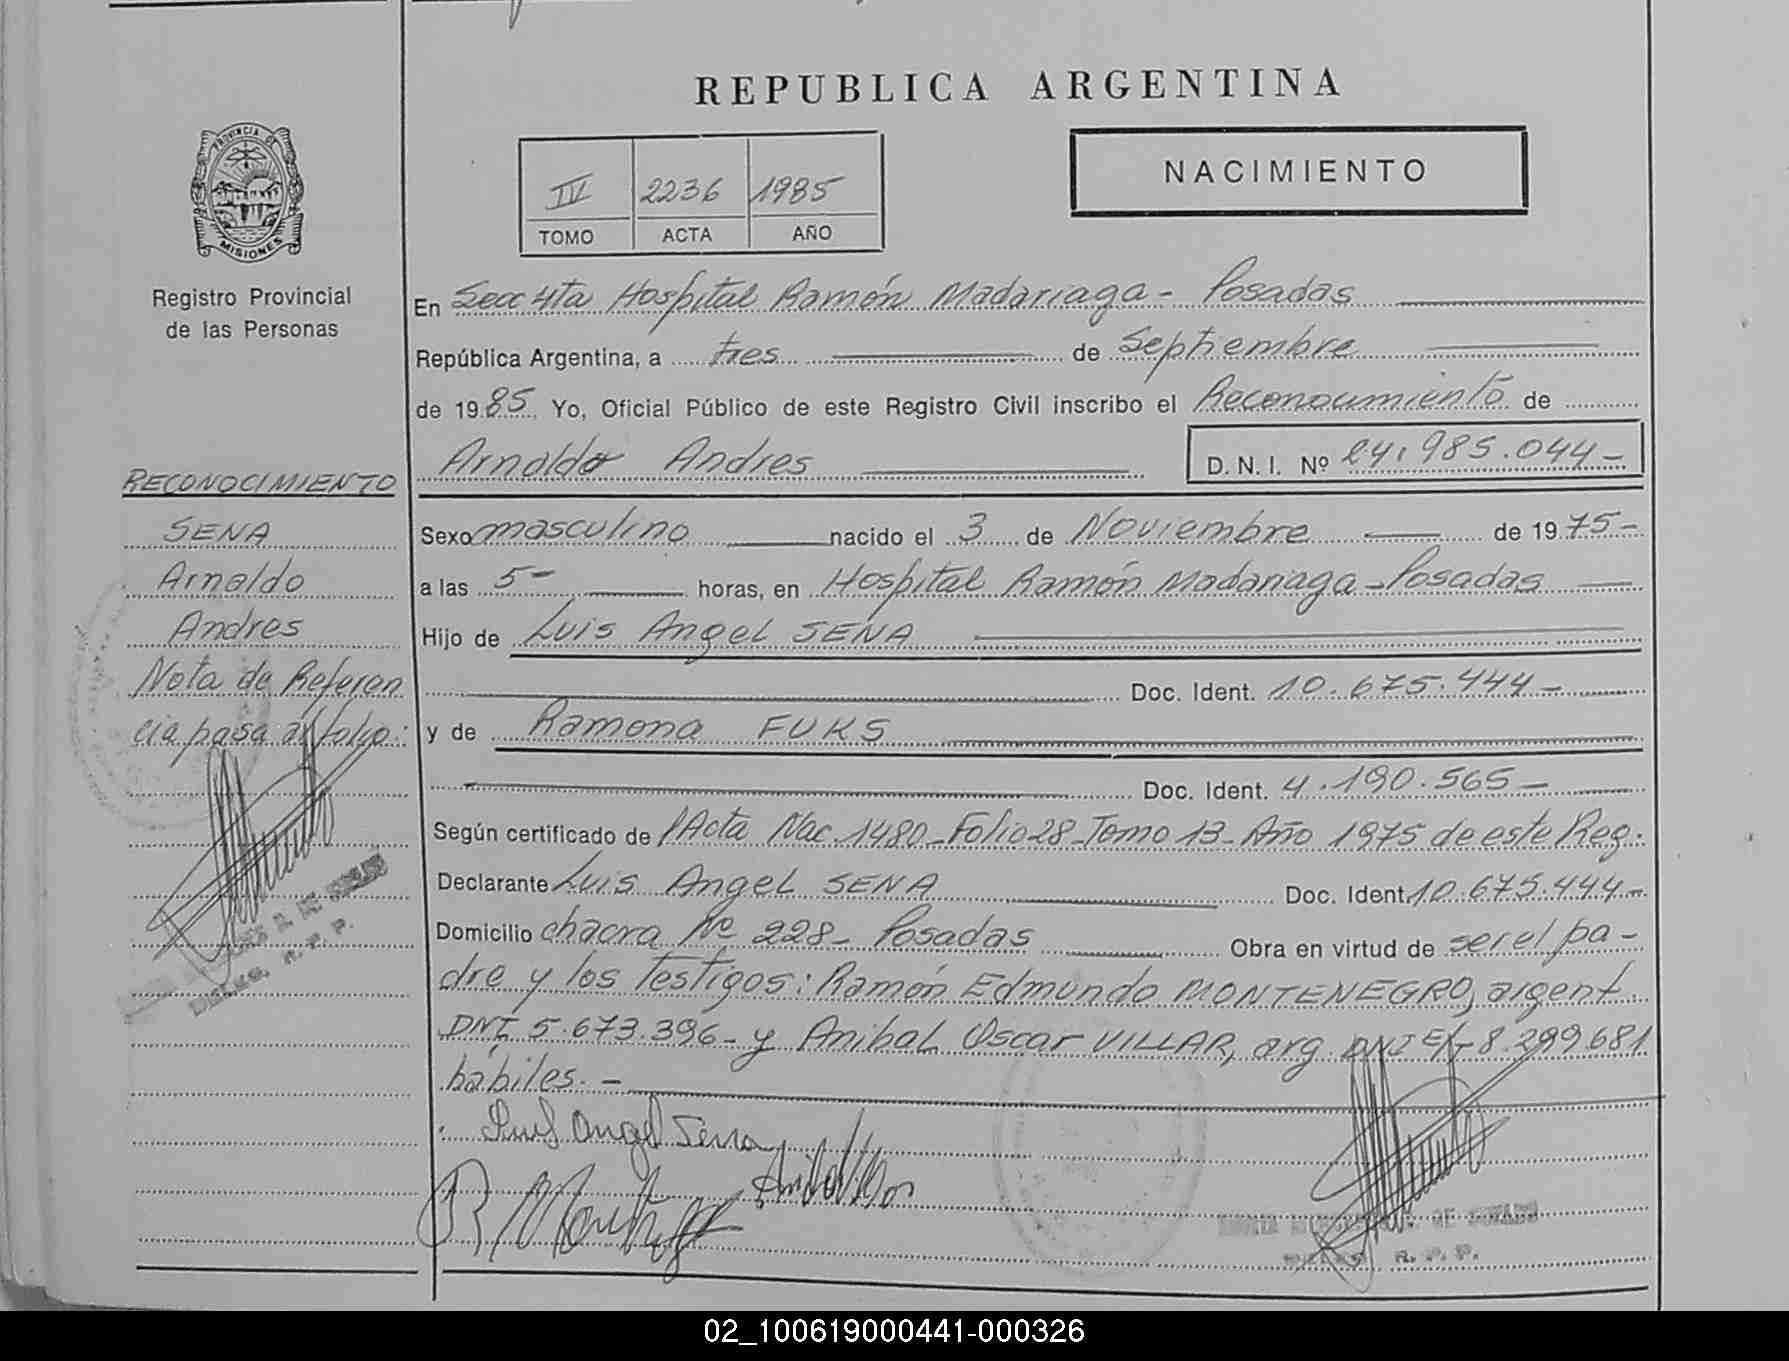 REPUBLICA ARGENTINA
PROVINCIA DE
MISIONES
Registro Provincial
de las Personas
IV 2236 1985
TOMO ACTA AÑO
NACIMIENTO
En Secc 4ta Hospital Ramón Madariaga - Posadas
República Argentina, a tres de Septiembre
de 1985 Yo, Oficial Público de este Registro Civil inscribo el Reconocimiento de
Arnaldo Andres D. N. I. Nº 24.985.044-
RECONOCIMIENTO
SENA
Arnaldo
Andres
Nota de Referen
cia pasa al folio:
Sexo masculino nacido el 3 de Noviembre de 1975-
a las 5- horas, en Hospital Ramón Madariaga - Posadas
Hijo de Luis Angel SENA
Doc. Ident. 10.675.444-
y de Ramona FUKS
Doc. Ident. 4.190.565-
Según certificado de /Acta Nac. 1480 - Folio 28 - Tomo 13 - Año 1975 de este Reg.
Declarante Luis Angel SENA Doc. Ident. 10.675.444-
Domicilio chacra Nº 228- Posadas Obra en virtud de ser el pa-
dre y los testigos: Ramón Edmundo MONTENEGRO, argent.
DNI 5.673.396- y Anibal Oscar VILLAR, arg DNI Ej- 8.299.681
hábiles.-
Luis Angel Sena
R. P. P.
R. P. P.
02_100619000441-000326